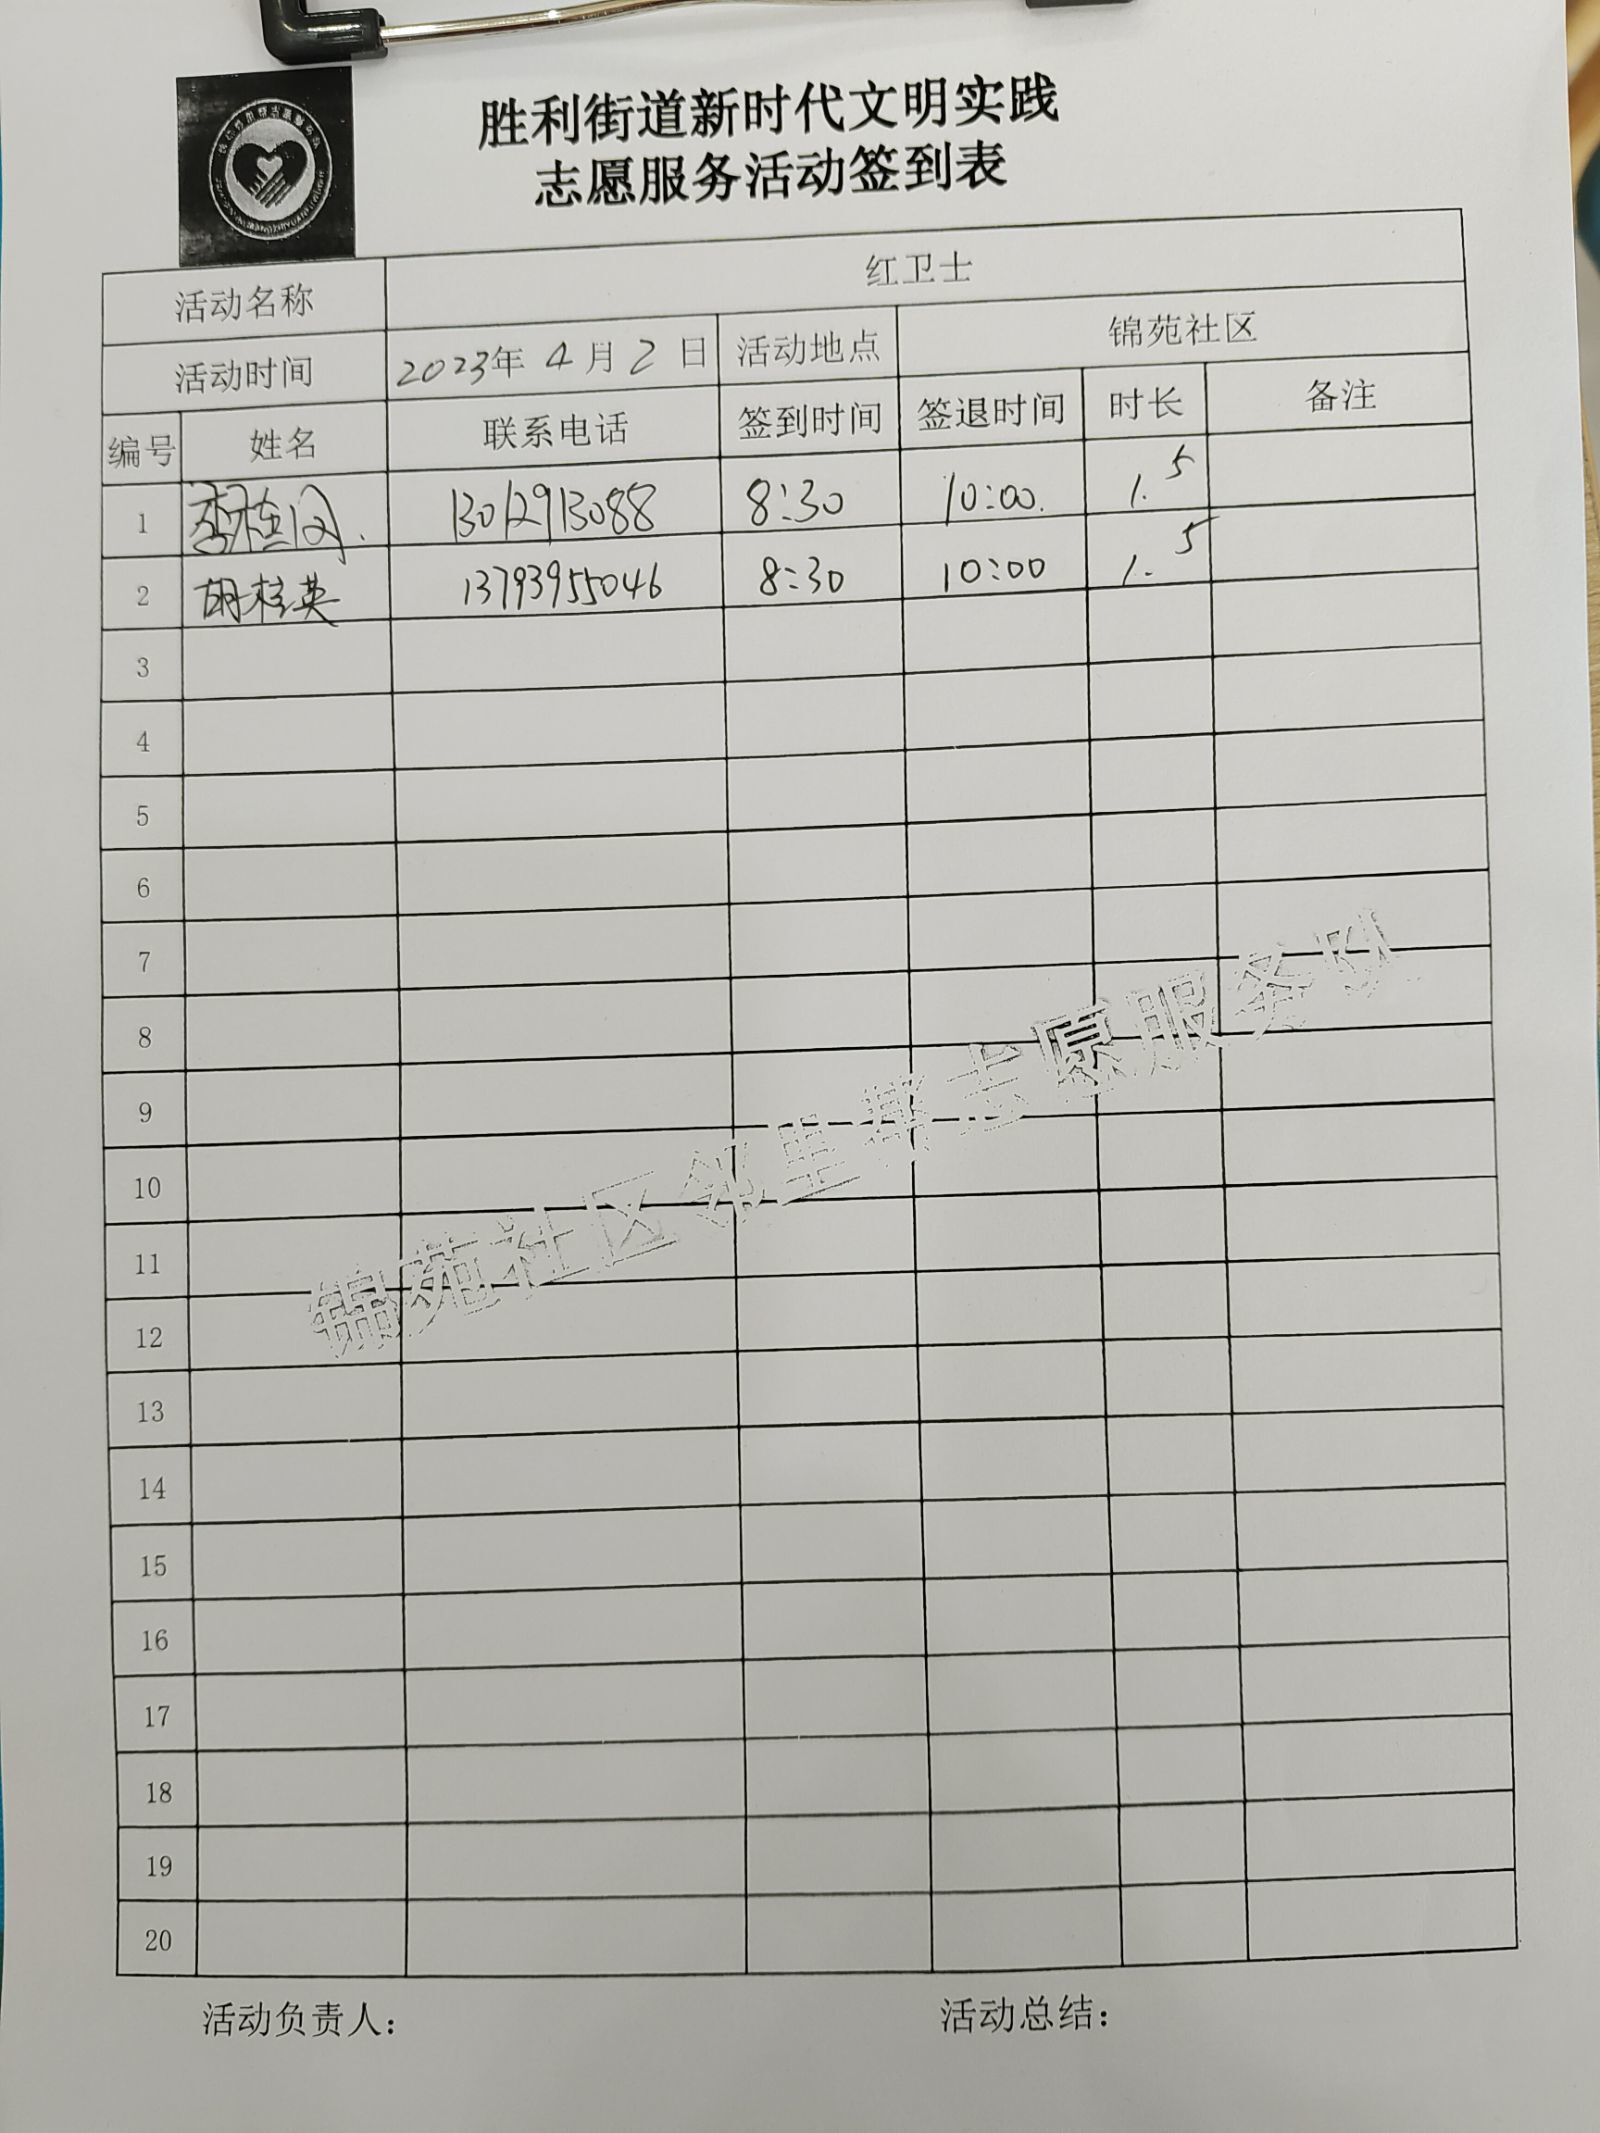 胜利街道新时代文明实践
志愿服务活动签到表
活动名称 红卫士
活动时间 2023年 4月 2日 活动地点 锦苑社区
编号 姓名 联系电话 签到时间 签退时间 时长 备注
1 李桂 13012913088 8:30 10:00. 1.5
2 胡桂英 13793955046 8:30 10:00 1.5
3
4
5
6
7
8
9
10
11
12
13
14
15
16
17
18
19
20
锦苑社区邻里帮志愿服务队
活动负责人: 活动总结: